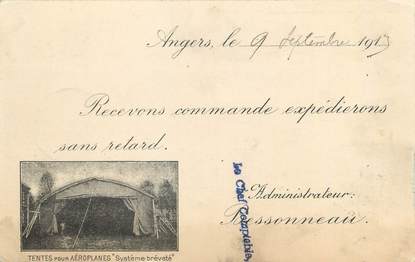 Angers, le 9 Septembre 191
Recevons commande expédierons
sans retard.
Le Chef Comptable,
L'Administrateur:
Bessonneau.
TENTES POUR AÉROPLANES "Système brêveté"